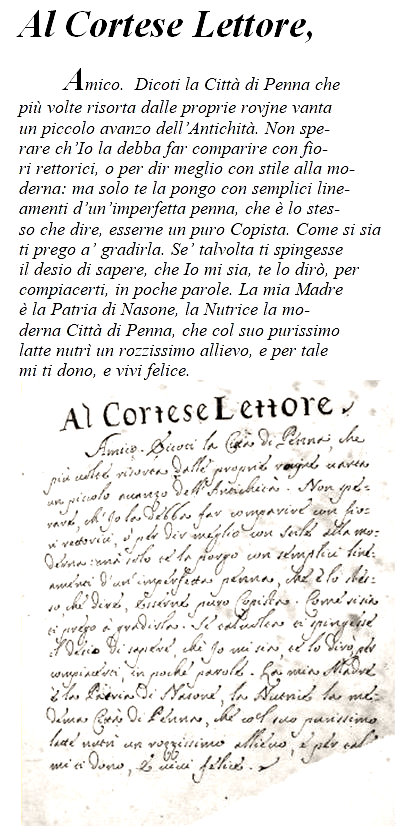 Al Cortese Lettore,
Amico. Dicoti la Città di Penna che
più volte risorta dalle proprie rovjne vanta
un piccolo avanzo dell'Antichità. Non spe-
rare ch'Io la debba far comparire con fio-
ri rettorici, o per dir meglio con stile alla mo-
derna: ma solo te la pongo con semplici line-
amenti d'un'imperfetta penna, che è lo stes-
so che dire, esserne un puro Copista. Come si sia
ti prego a' gradirla. Se' talvolta ti spingesse
il desio di sapere, che Io mi sia, te lo dirò, per
compiacerti, in poche parole. La mia Madre
è la Patria di Nasone, la Nutrice la mo-
derna Città di Penna, che col suo purissimo
latte nutrì un rozzissimo allievo, e per tale
mi ti dono, e vivi felice.
Al Cortese Lettore.
Amico. Dicoti la Città di Penna, che
più volte risorta dalle proprie rovjne vanta
un piccolo avanzo dell'Antichità. Non spe-
rare, ch'Jo la debba far comparire con fio-
ri rettorici, ò per dir meglio con stile alla mo-
derna: mà solo te la porgo con semplici line-
amenti d'un'imperfetta penna, che è lo stes-
so che dire, esserne puro Copista. Come si sia
ti prego à gradirla. Se talvolta ti spingesse
il desio di sapere, che Jo mi sia te lo dirò, per
compiacerti, in poche parole. La mia Madre
è la Patria di Nasone, la Nutrice la me-
dema Città di Penna, che col suo purissimo
latte nutrì un rozzissimo allievo, è per tal
mi ti dono, e vivi felice.